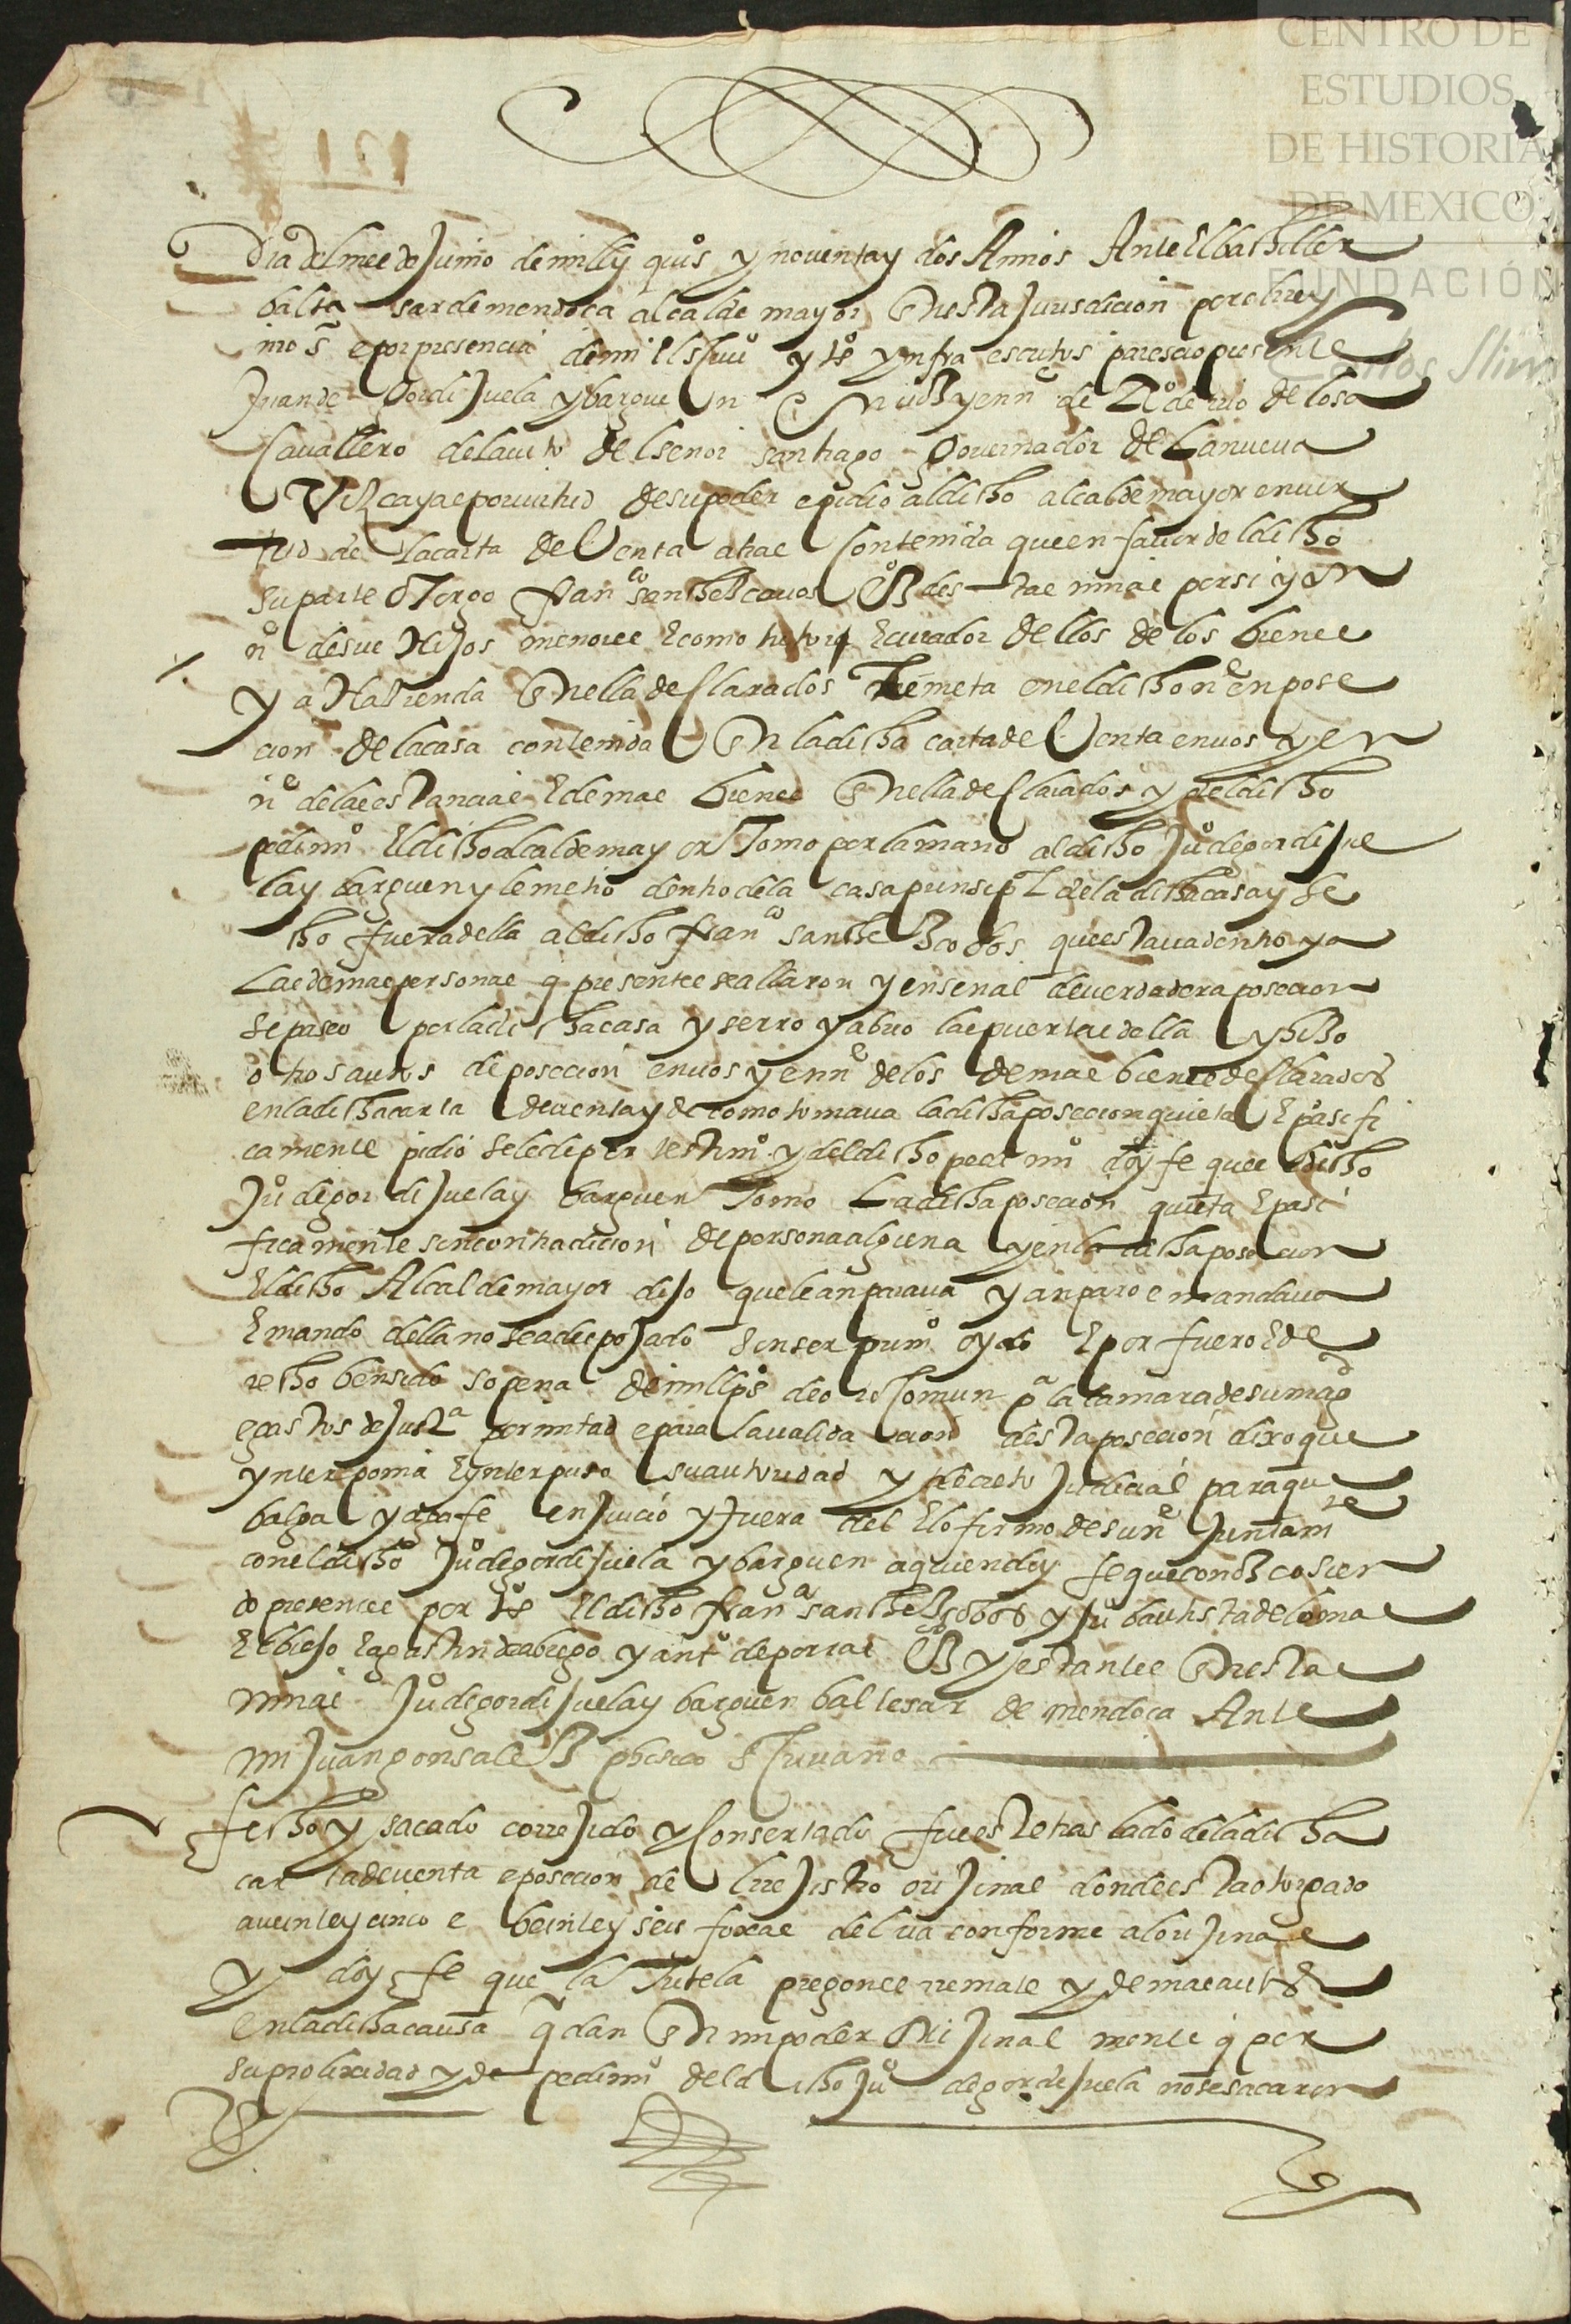 CENTRO DE
ESTUDIOS
DE HISTORIA
DE MEXICO
FUNDACIÓN
Carlos Slim
121
Dia del mes de Junio de mill y quis y noventa y dos Annos Ante El bachiller
balta sar de mendoça alcalde mayor En esta Jurisdicion por el rrey
nro s e por presencia de mi El scriuo y tsº ynfra escritos parescio presente
Juan de Gordijuela ybarguen En y en nº de Rº de rrio de losa
Cavallero del auito del señor santiago governador de La nueva
Vizcaya e por virtud de su poder e pidio al dicho alcalde mayor en vir
tud de la carta de Venta atras Contenida que en favor del dicho
su parte otorgo franco sanchez covos destas minas por si y en
nº de sus Hijos menores E como tutor y E curador dellos de los bienes
y a Hazienda En ella desClarados Le meta en el dicho nº en pose
cion de la casa contenida En la dicha carta de Venta en vos y en
nº de las estancias E demas bienes En ella desClarados y del dicho
pedimº El dicho alcalde mayor Tomo por la mano al dicho Juº de gordijue
la y barguen y le metio dentro de la casa prinsipl de la dicha casa y he
cho fuera della al dicho franco sanchez cobos que estava dentro y a
Las demas personas q presentes se allaron y en señal de verdadera posecion
se paseo por la dicha casa y serro y abrio las puertas della y hizo
otros autos de posecion en vos y en nº de los demas bienes desClarados
en la dicha carta de venta y de como tomava la dicha posecion quieta E pasifi
camente pidio se le de por testimº y del dicho pedimº doy fe que el dicho
Juº de gordijuela y barguen Tomo La dicha posecion quieta E pasi
ficamente sin contradicion de persona alguna y en la dicha posecion
El dicho Alcalde mayor dijo que le anparava y anparo e mandava
E mando della no sea despojado sin ser primº oydo E por fuero E de
recho bensido so pena de mill ps de oro Comun pª la camara de su magd
e gastos de justª por mitad e para la valida cion desta posecion dixo que
ynterponia E ynterpuso su autoridad y decreto Judicial para que
balga y aga fe en juicio y fuera del E lo firmo de su nº Juntamte
con el dicho Juº de gordijuela y barguen a quien doy fe que conozco sien
do presentes por tsº El dicho franco sanchez cobos y juº bautista de lomas
El biejo E agustin de abrego y antº de portas y estantes En estas
minas Juº de gordijuela y barguen baltesar de mendoça Ante
mi Juan gonsalez pbisco scrivano
fecho y sacado correjido y Consertado fue este traslado de la dicha
carta de venta e posecion del rrejistro orijinal donde esta otorgado
a veinte y cinco e beinte y seis foxas del va conforme al orijinal
y doy fe que la Tutela pregones remate y demas autos
en la dicha causa qdan En mi poder Orijinal mente q por
su prolixidad y de pedimº del dicho Juº de gordijuela no se sacaron